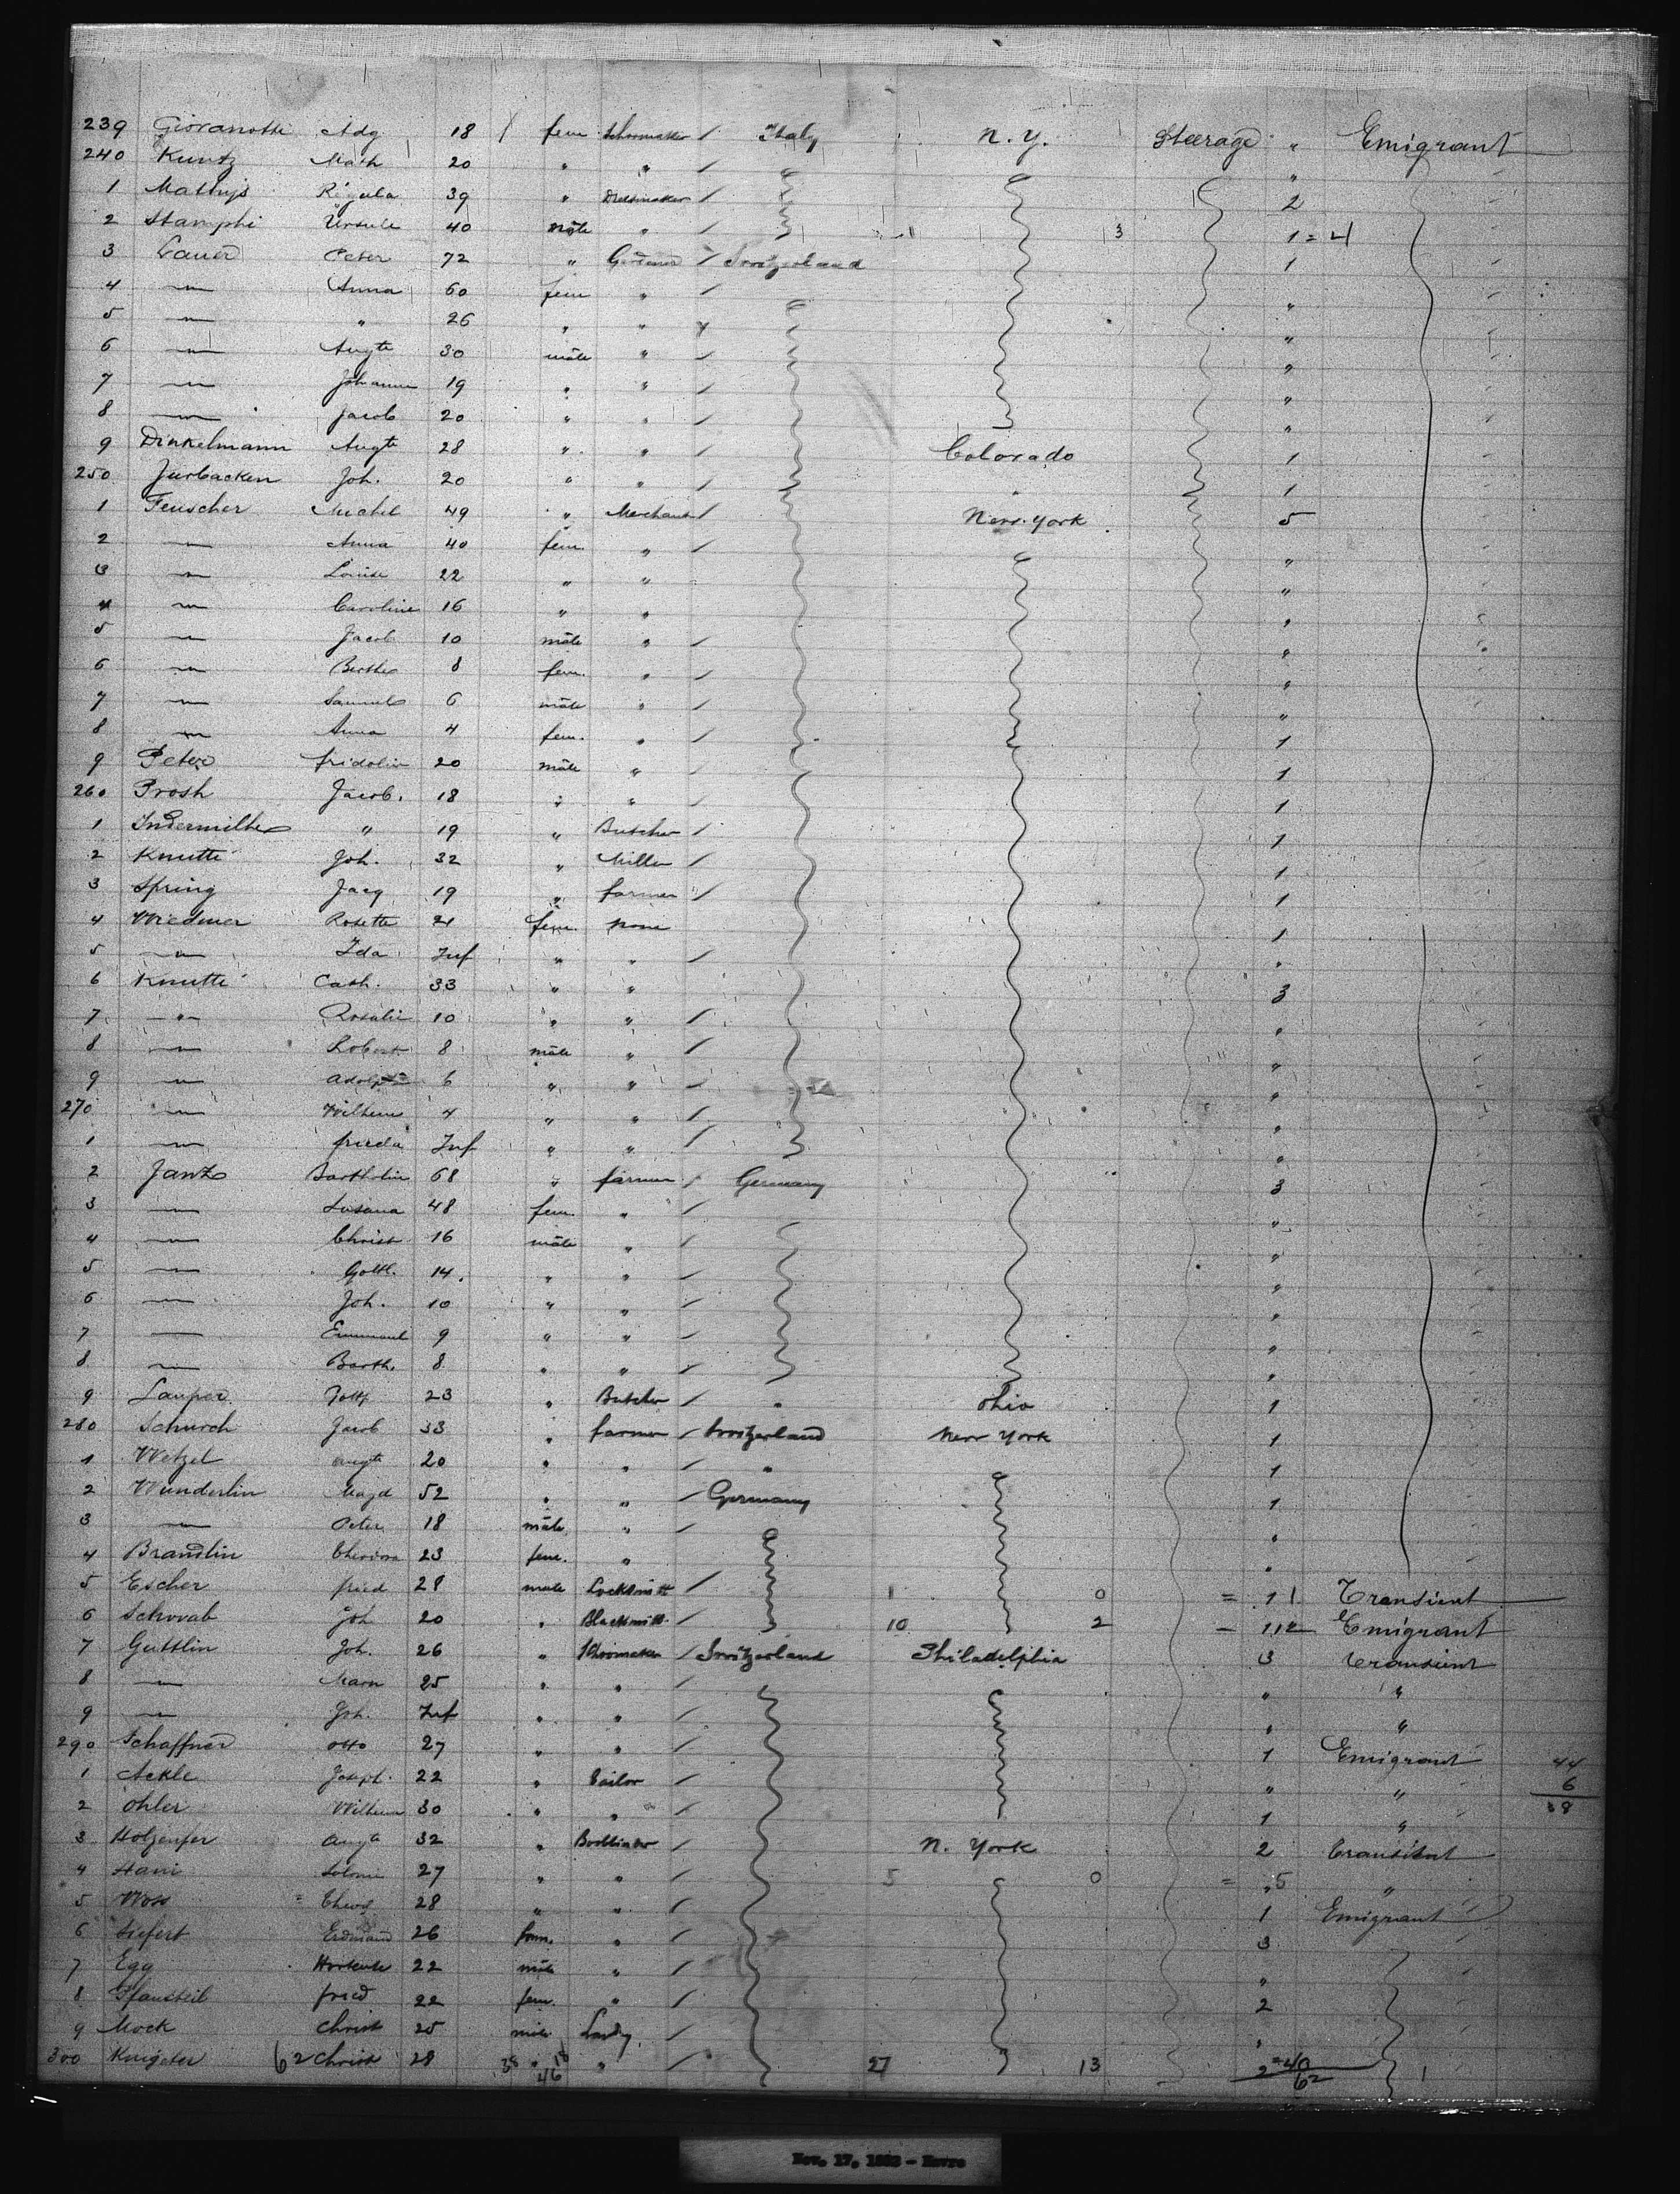 239 Giovanotti Adg 18 / fem Schoomaker / Italy N. Y. Steerage " Emigrant
240 Kuntz Math 20 " " / " "
1 Mathys Rigula 39 " Dressmaker / 2
2 Stamphi Ursule 40 male " / 3 1 = 4
3 Lauer Peter 72 " / Switzerland 1
4 — Anna 60 fem " / "
5 — " 26 " " "
6 — Augte 30 male " / "
7 — Johann 19 " " / "
8 — Jacob 20 " " / "
9 Dinkelmann Augte 28 " " / Colorado 1
250 Jurbacken Joh. 20 " " / " 1
1 Feuscher Michel 49 " Merchant / New-York 5
2 — Anna 40 fem. " / "
3 — Louise 22 " " "
4 — Caroline 16 " " "
5 — Jacob 10 male " / "
6 — Berthe 8 fem. " / "
7 — Samuel 6 male " / "
8 — Anna 4 fem. " / 1
9 Peter fridolin 20 male " / 1
260 Prosh Jacob. 18 " " / 1
1 Indermilher " 19 " Butcher / 1
2 Knutti Joh. 32 " Miller / 1
3 Spring Jacq 19 " farmer / 1
4 Wiedmer Rosette 21 fem. none 1
5 — Ida Inf " " / "
6 Knutti Cath. 33 " " 3
7 — Rosalie 10 " " / "
8 — Robert 8 male " / "
9 — Adolph 6 " " / "
270 — Wilhem 4 " " / "
1 — frieda Inf " " / "
2 Jantz Barthelin 68 " farmer / Germany 3
3 — Susana 48 fem. " / "
4 — Christ 16 male " / "
5 — Gottl. 14. " " / "
6 — Joh. 10 " " / "
7 — Emmanuel 9 " " / "
8 — Barth. 8 " " / "
9 Lauper Gottf 23 " Butcher / " Ohio 1
280 Schurch Jacob 33 " farmer / Switzerland New York 1
1 Wetzel Augte 20 " " / " 1
2 Wunderlin Magd 52 " " / Germany 1
3 — Peter 18 male " / "
4 Brandlin 23 fem. " "
5 Escher fried 28 male Locksmith / 1 0 = 11 Transient
6 Schwab Joh 20 " Blacksmith / 10 2 — 112 Emigrant
7 Guttlin Joh. 26 " Shoomaker / Switzerland Philadelphia 3 transient
8 — Marn 25 " " / " "
9 — Joh. Inf " " / " "
290 Schaffner Otto 27 " " / 1 Emigrant 44
1 Ackle Joseph. 22 " Tailor / " " 6
2 Ohler Wilhem 30 " " / 1 " 38
3 Holzenfer Augte 32 " / N. York 2 transient
4 Hani 27 " " / 5 0 = "5 "
5 Woss 28 " " / 1 Emigrant
6 Siefert 26 fem. " / 3
7 Egg Hortense 22 male " / "
8 Pfansteil fried 22 fem. " / 2
9 Mock Christ 25 male / "
300 62 Christ 28 38 " 18 46 " / 27 13 2 = 40 62
Nov. 17, 1883 - Havre